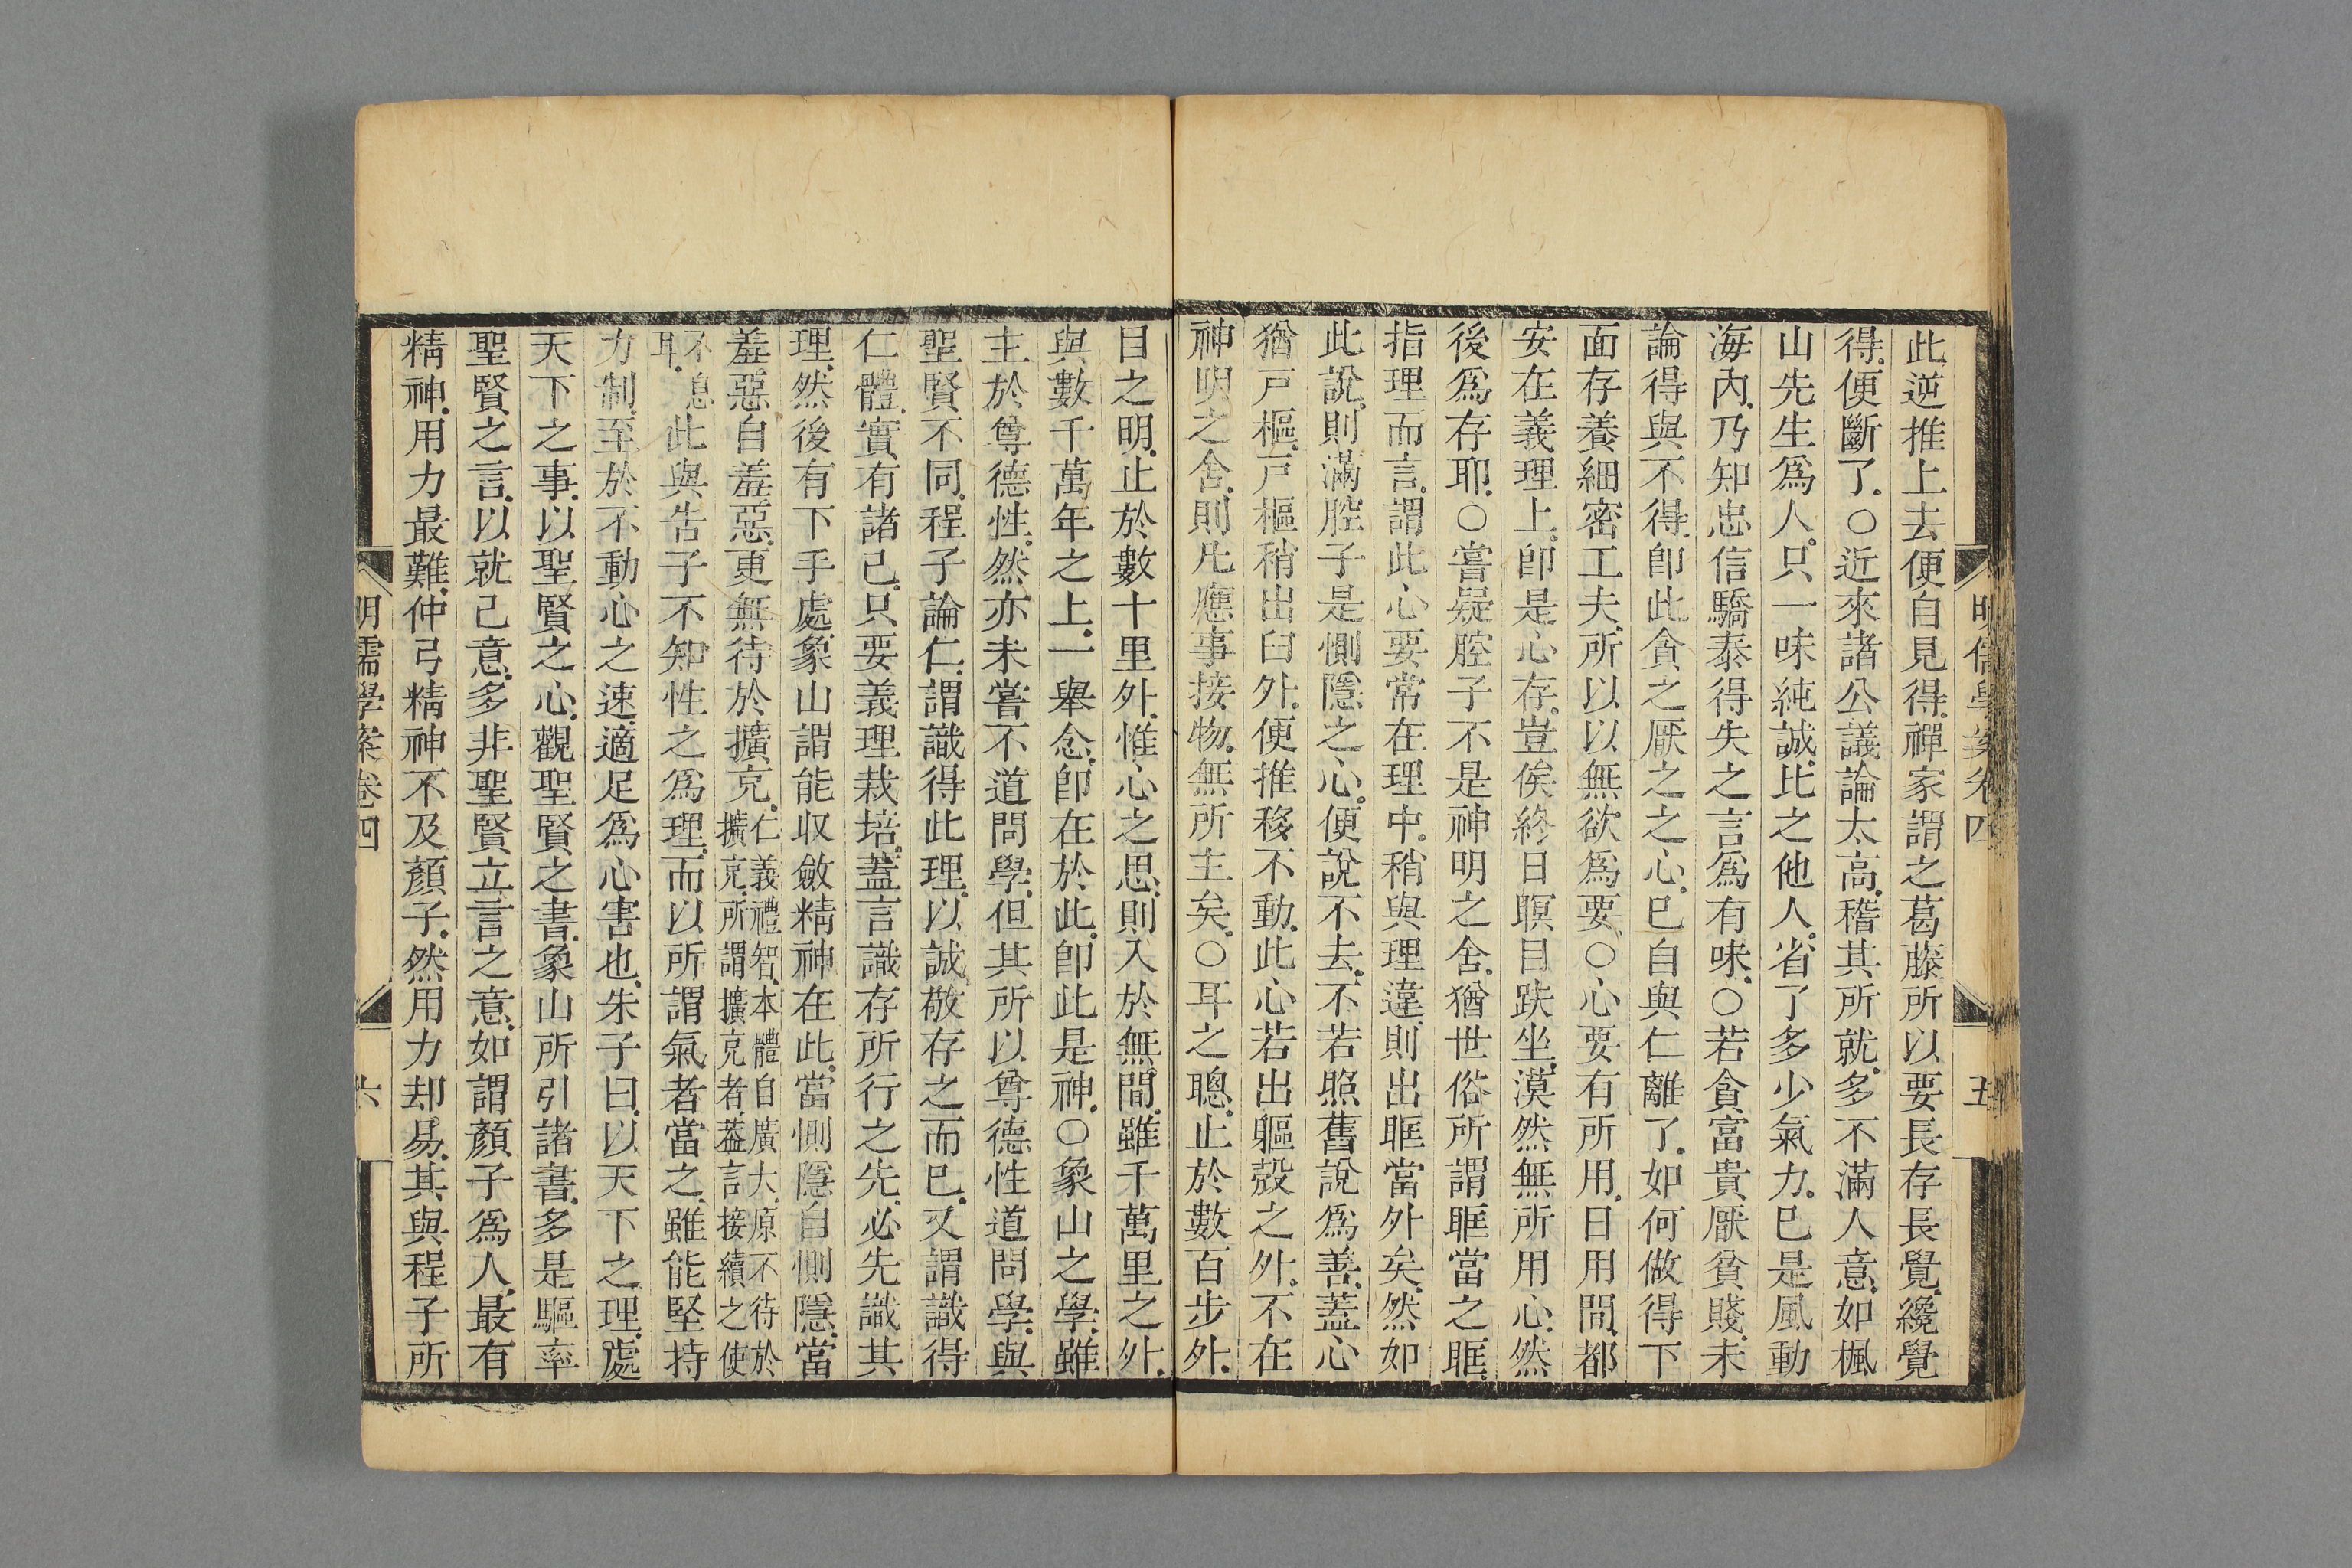 此逆推上去便自見得禪家謂之葛藤所以要長存長覺纔覺
得便斷了○近來諸公議論太高稽其所就多不滿人意如楓
山先生爲人只一味純誠比之他人省了多少氣力已是風動
海內乃知忠信驕泰得失之言爲有味○若貪富貴厭貧賤未
論得與不得卽此貪之厭之之心已自與仁離了如何做得下
面存養細密工夫所以以無欲爲要○心要有所用日用間都
安在義理上卽是心存豈俟終日瞑目趺坐漠然無所用心然
後爲存耶○嘗疑腔子不是神明之舍猶世俗所謂眶當之眶
指理而言謂此心要常在理中稍與理違則出眶當外矣然如
此說則滿腔子是惻隱之心便說不去不若照舊說爲善蓋心
猶戸樞戸樞稍出臼外便推移不動此心若出軀殼之外不在
神明之舍則凡應事接物無所主矣○耳之聰止於數百步外
目之明止於數十里外惟心之思則入於無間雖千萬里之外
與數千萬年之上一舉念卽在於此卽此是神○象山之學雖
主於尊德性然亦未嘗不道問學但其所以尊德性道問學與
聖賢不同程子論仁謂識得此理以誠敬存之而已又謂識得
仁體實有諸己只要義理栽培蓋言識存所行之先必先識其
理然後有下手處象山謂能收斂精神在此當惻隱自惻隱當
羞惡自羞惡更無待於擴充仁義禮智本體自廣大原不待於擴充所謂擴充者蓋言接續之使
不息耳此與告子不知性之爲理而以所謂氣者當之雖能堅持
力制至於不動心之速適足爲心害也朱子曰以天下之理處
天下之事以聖賢之心觀聖賢之書象山所引諸書多是驅率
聖賢之言以就己意多非聖賢立言之意如謂顏子爲人最有
精神用力最難仲弓精神不及顏子然用力却易其與程子所
明儒學案卷四 五
明儒學案卷四 六